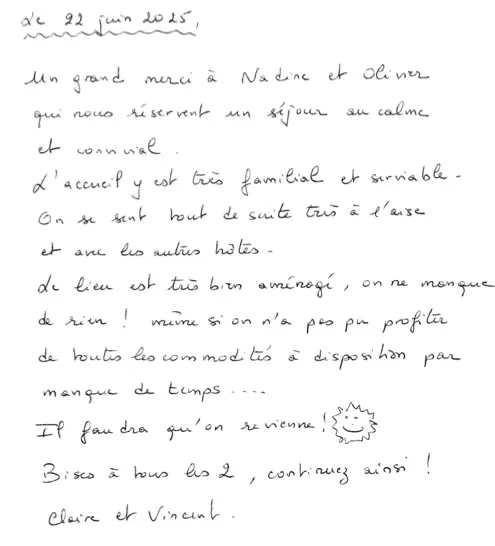 Le 22 juin 2025,
Un grand merci à Nadine et Olivier
qui nous réservent un séjour au calme
et convivial.
L'accueil y est très familial et serviable.
On se sent tout de suite très à l'aise
et avec les autres hôtes.
Le lieu est très bien aménagé, on ne manque
de rien ! même si on n'a pas pu profiter
de toutes les commodités à disposition par
manque de temps ....
Il faudra qu'on revienne !
Bises à tous les 2, continuez ainsi !
Claire et Vincent.